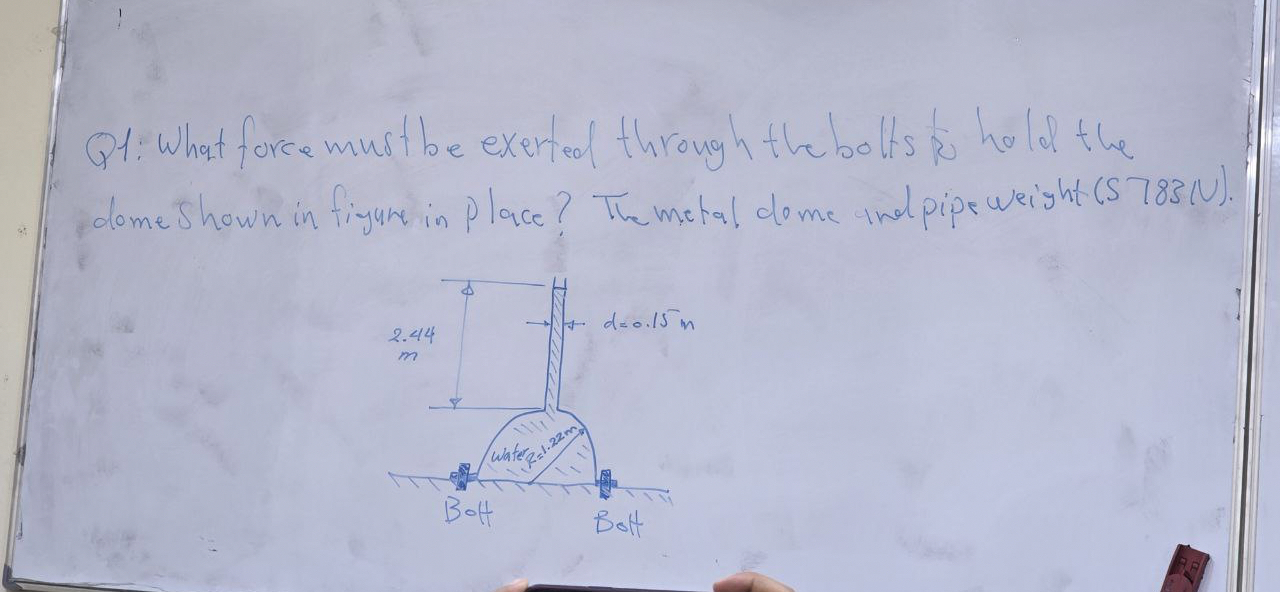 Q1: What force must be exerted through the bolts to hold the
dome shown in figure in place? The metal dome and pipe weight (5783N).
2.44
m
d=0.15m
water
R=1.22m
Bolt
Bolt